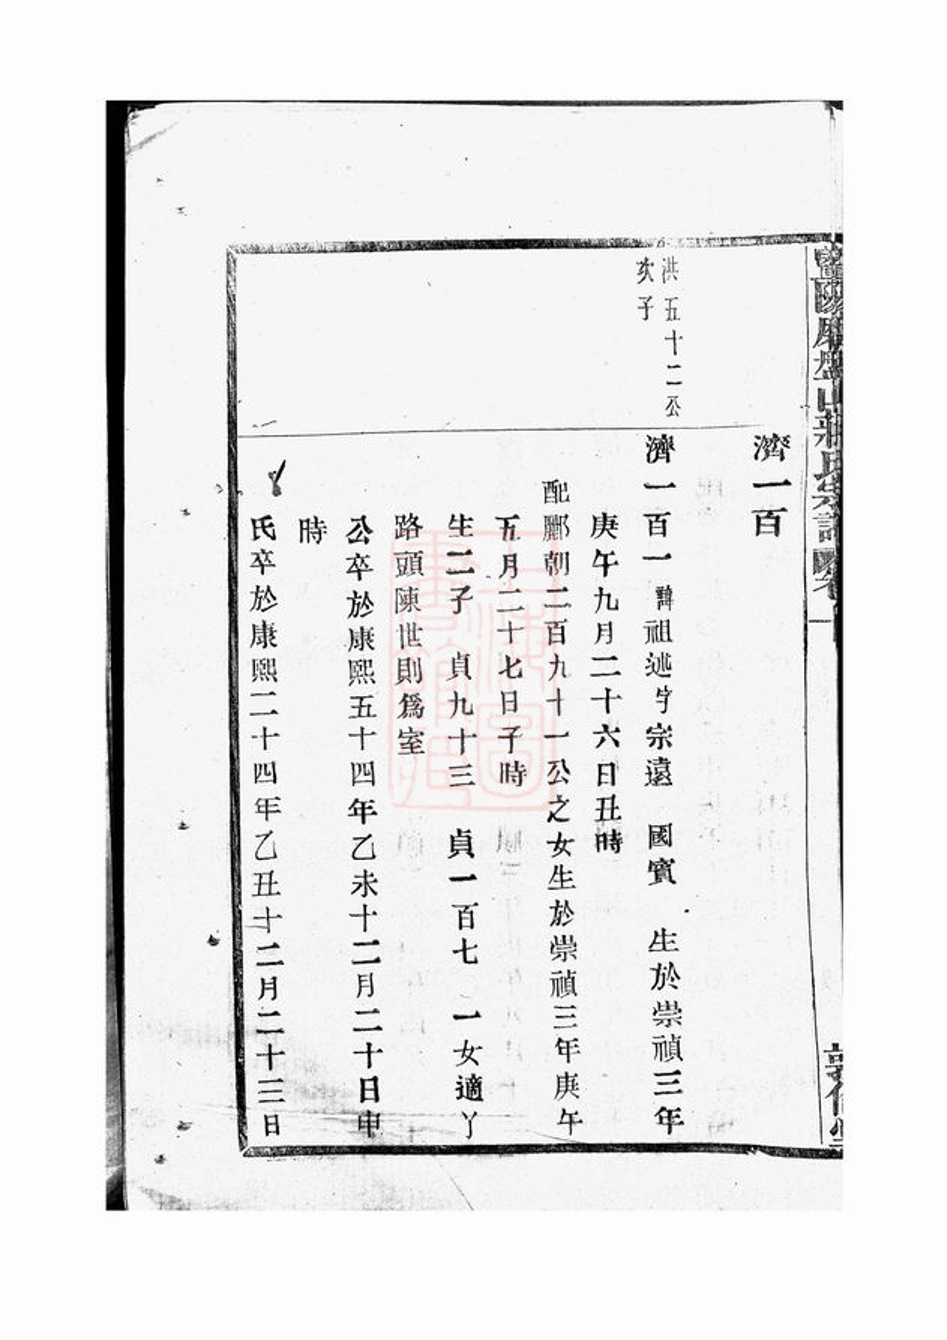 暨陽磨盤山蔣氏宗譜
濟一百
洪五十二公
次子
濟一百一 諱祖述字宗遠 國賓 生於崇禎三年
庚午九月二十六日丑時
配酈朝二百九十一公之女生於崇禎三年庚午
五月二十七日子時
生二子 貞九十三 貞一百七 一女適丫
路頭陳世則爲室
公卒於康熙五十四年乙未十二月二十日申
時
氏卒於康熙二十四年乙丑十二月二十三日
上海圖書館藏